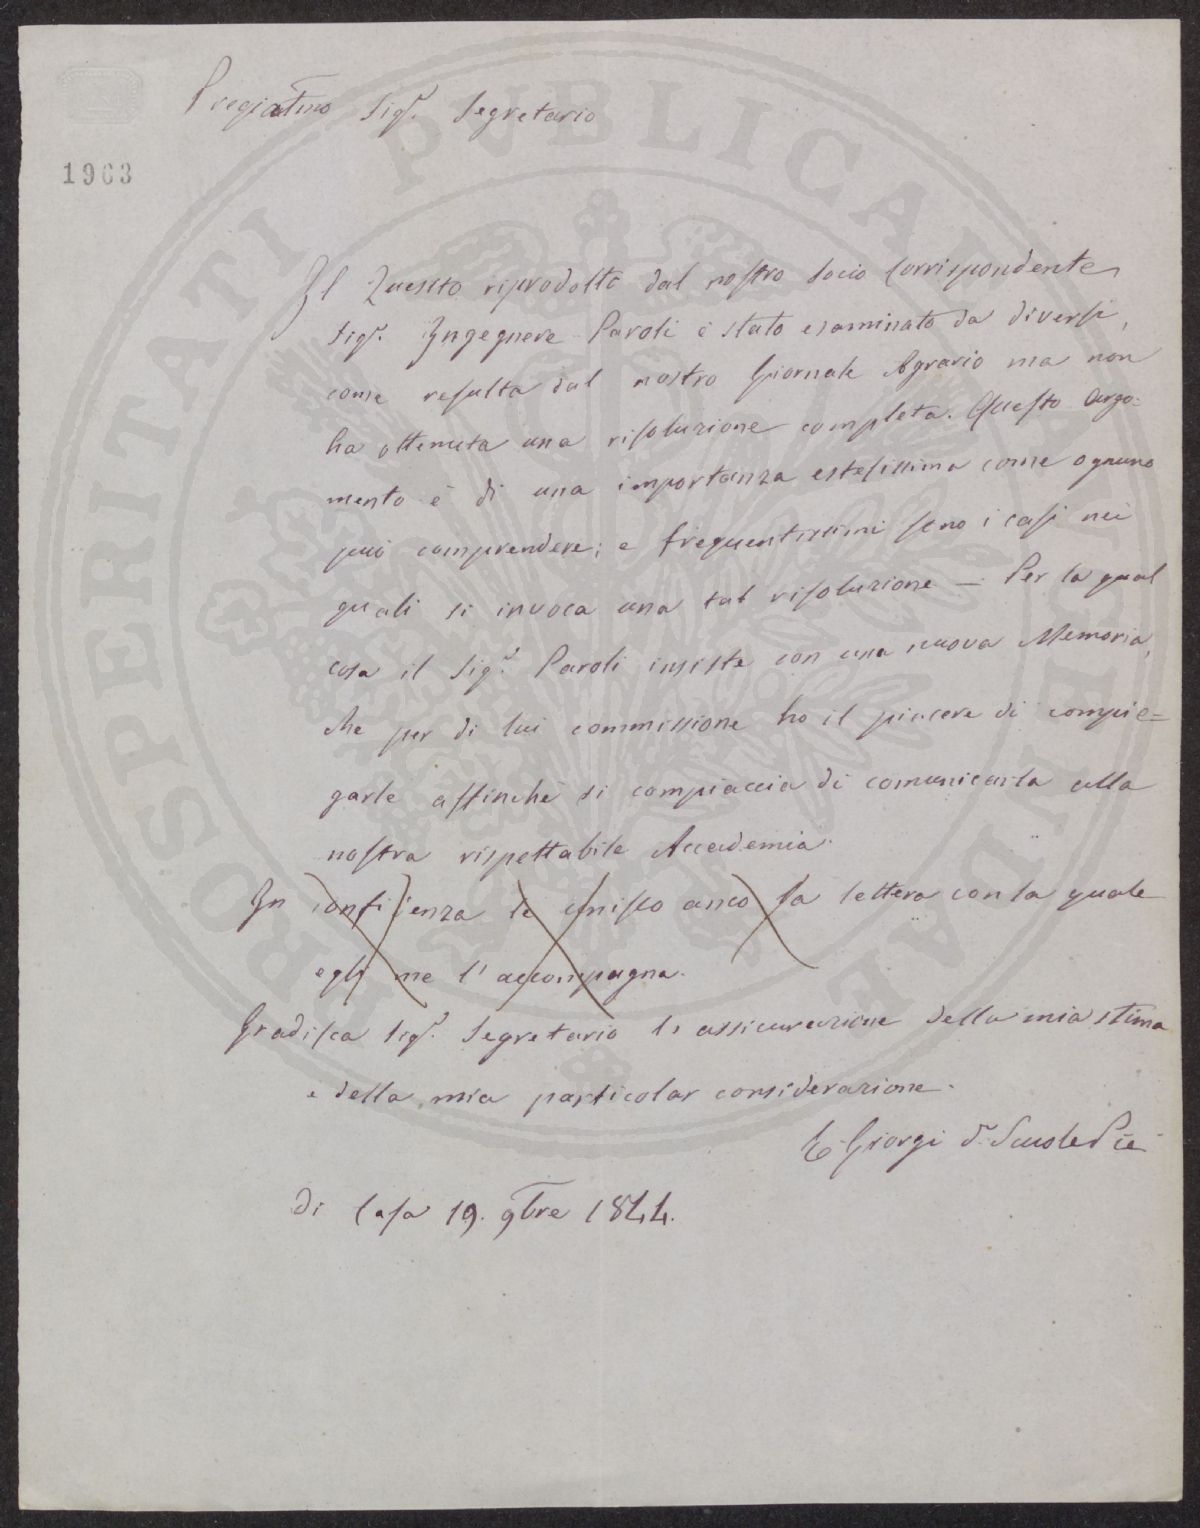 Pregiatmo Sigr. Segretario
1963
Il Quesito riprodotto dal nostro Socio Corrispondente
Sigr. Ingegnere Paroli è stato esaminato da diversi,
come resulta dal nostro Giornale Agrario ma non
ha ottenuta una risoluzione completa. Questo Argo:
mento è di una importanza estesissima come ognuno
può comprendere; e frequentissimi sono i casi nei
quali si invoca una tal risoluzione — Per la qual
cosa il Sigr. Paroli insiste con una nuova Memoria,
che per di lui commissione ho il piacere di compie=
garle affinchè si compiaccia di comunicarla alla
nostra rispettabile Accademia.
In confidenza le unisco anco la lettera con la quale
egli me l'accompagna.
Gradisca Sigr. Segretario le assicurazione della mia stima
e della mia particolar considerazione.
E Giorgi d. Scuole Pie
di Casa 19. 9bre 1844.
PROSPERITATI PUBLICAE AUGENDAE